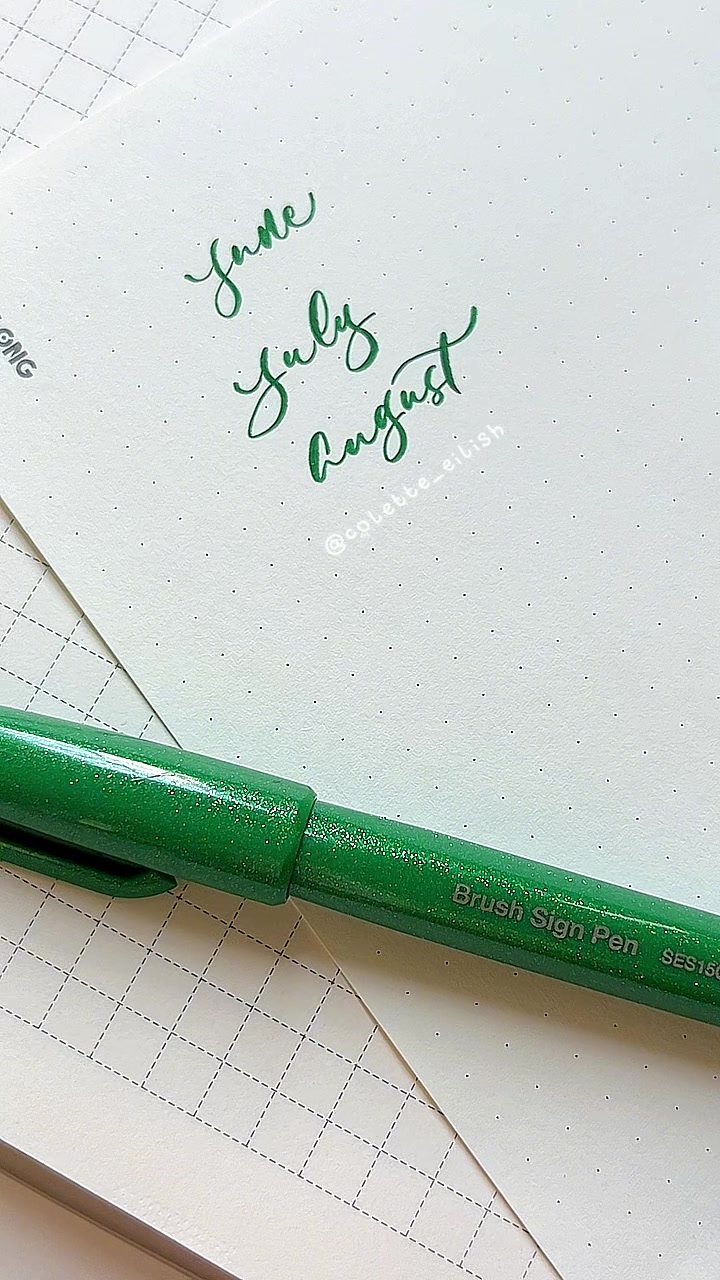 June
July
August
@colette_eilish
Brush Sign Pen